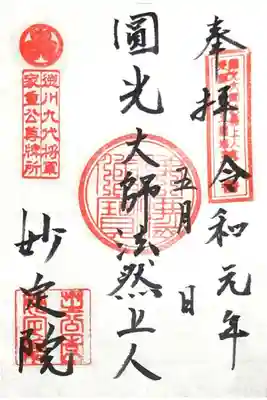 奉拝 令和元年
五月 日
圓光大師法然上人
妙定院
徳川九代将軍
家重公尊牌所